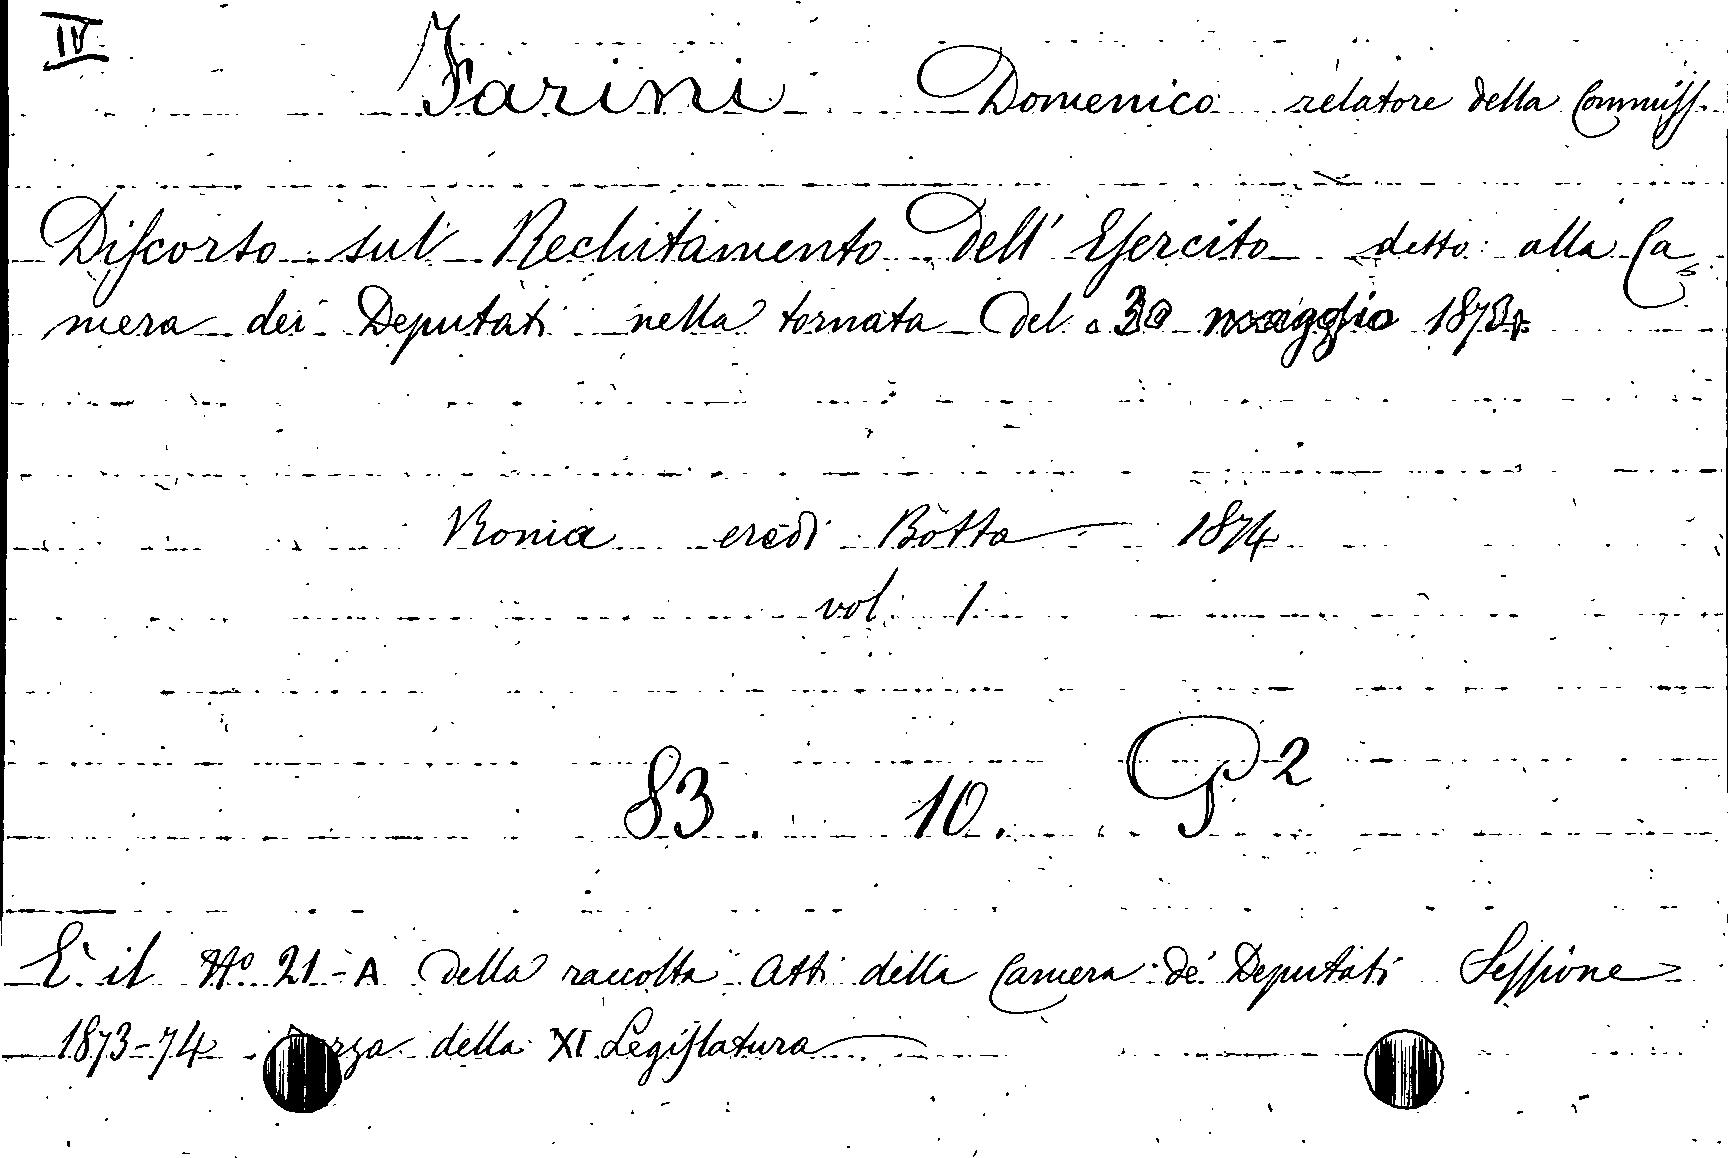 IV
Farini Domenico relatore della Commiss.
Discorso sul Reclutamento dell' Esercito detto alla Ca=
mera dei Deputati nella tornata del 30 maggio 1874
Roma eredi Botta 1874
vol. 1
83. 10. P2
È il No. 21-A della raccolta Atti della Camera de' Deputati Sessione
1873-74 della XI Legislatura